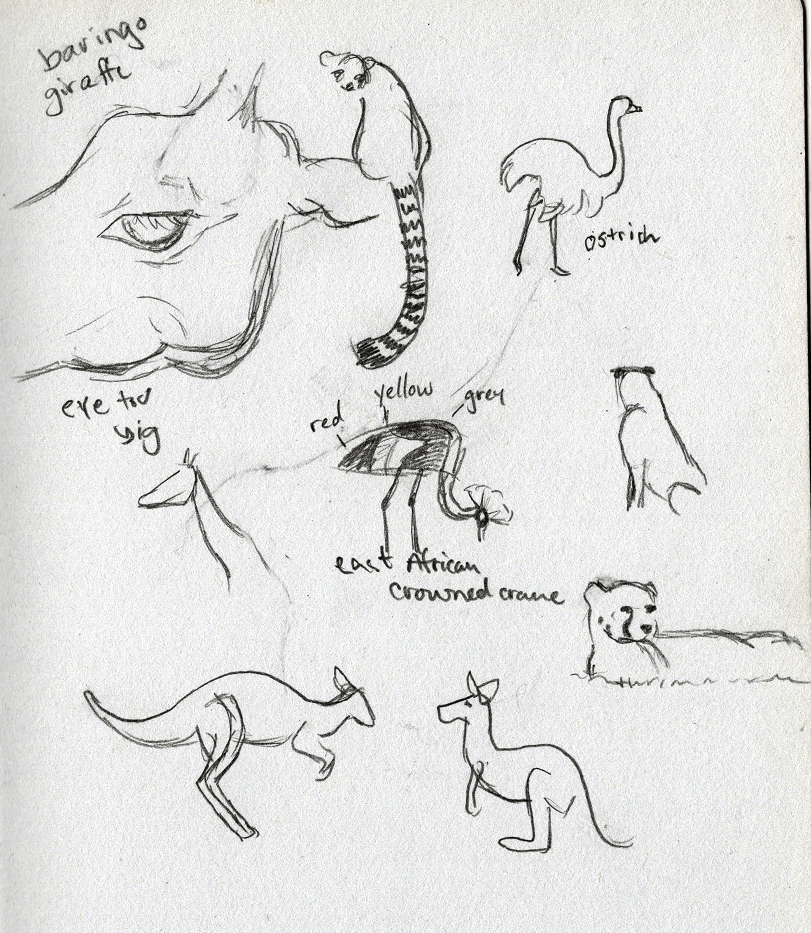 baringo
giraffe
ostrich
eye too
big
red
yellow
grey
east African
crowned crane